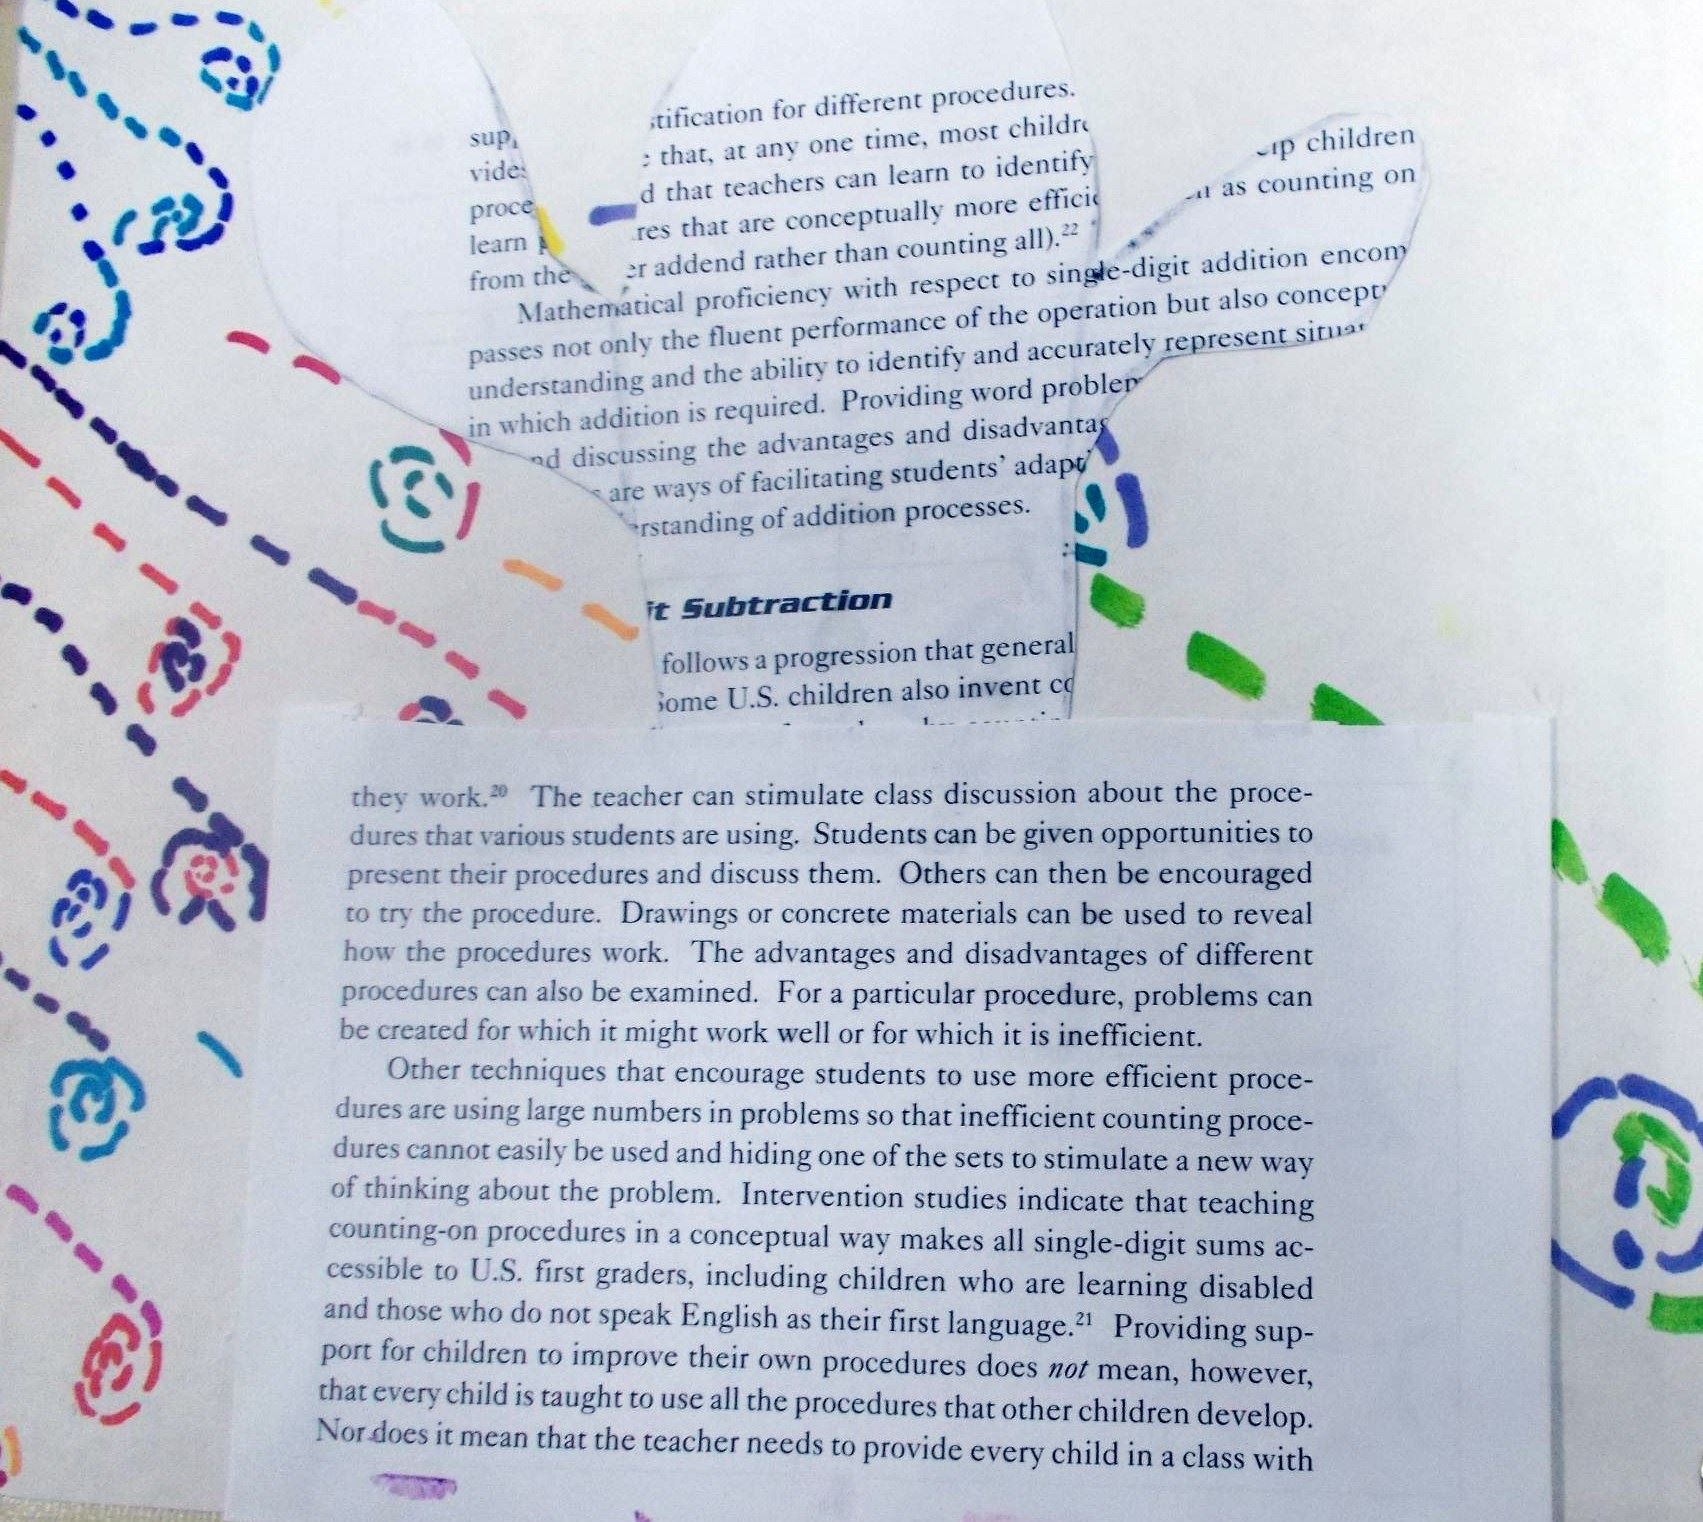 stification for different procedures.
that, at any one time, most
that teachers can learn to identify
that are conceptually more
children
as counting on
learn
from the
addend rather than counting all).22
Mathematical proficiency with respect to single-digit addition encom
passes not only the fluent performance of the operation but also
understanding and the ability to identify and accurately represent
in which addition is required. Providing word
discussing the advantages and
are ways of facilitating students'
of addition processes.
Subtraction
follows a progression that
U.S. children also invent
they work.20 The teacher can stimulate class discussion about the proce-
dures that various students are using. Students can be given opportunities to
present their procedures and discuss them. Others can then be encouraged
to try the procedure. Drawings or concrete materials can be used to reveal
how the procedures work. The advantages and disadvantages of different
procedures can also be examined. For a particular procedure, problems can
be created for which it might work well or for which it is inefficient.
Other techniques that encourage students to use more efficient proce-
dures are using large numbers in problems so that inefficient counting proce-
dures cannot easily be used and hiding one of the sets to stimulate a new way
of thinking about the problem. Intervention studies indicate that teaching
counting-on procedures in a conceptual way makes all single-digit sums ac-
cessible to U.S. first graders, including children who are learning disabled
and those who do not speak English as their first language.21 Providing sup-
port for children to improve their own procedures does not mean, however,
that every child is taught to use all the procedures that other children develop.
Nor does it mean that the teacher needs to provide every child in a class with